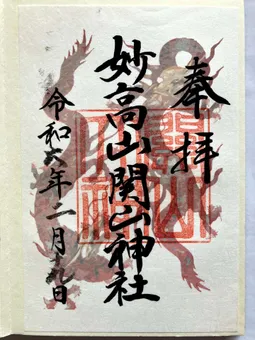 奉拝
妙高山関山神社
令和六年二月九日